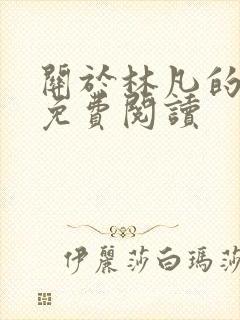 關於林凡的
免費閱讀
伊麗莎白瑪莎